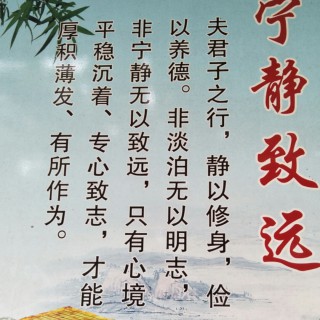 宁静致远
夫君子之行，静以修身，俭
以养德。非淡泊无以明志，
非宁静无以致远，只有心境
平稳沉着、专心致志，才能
厚积薄发、有所作为。